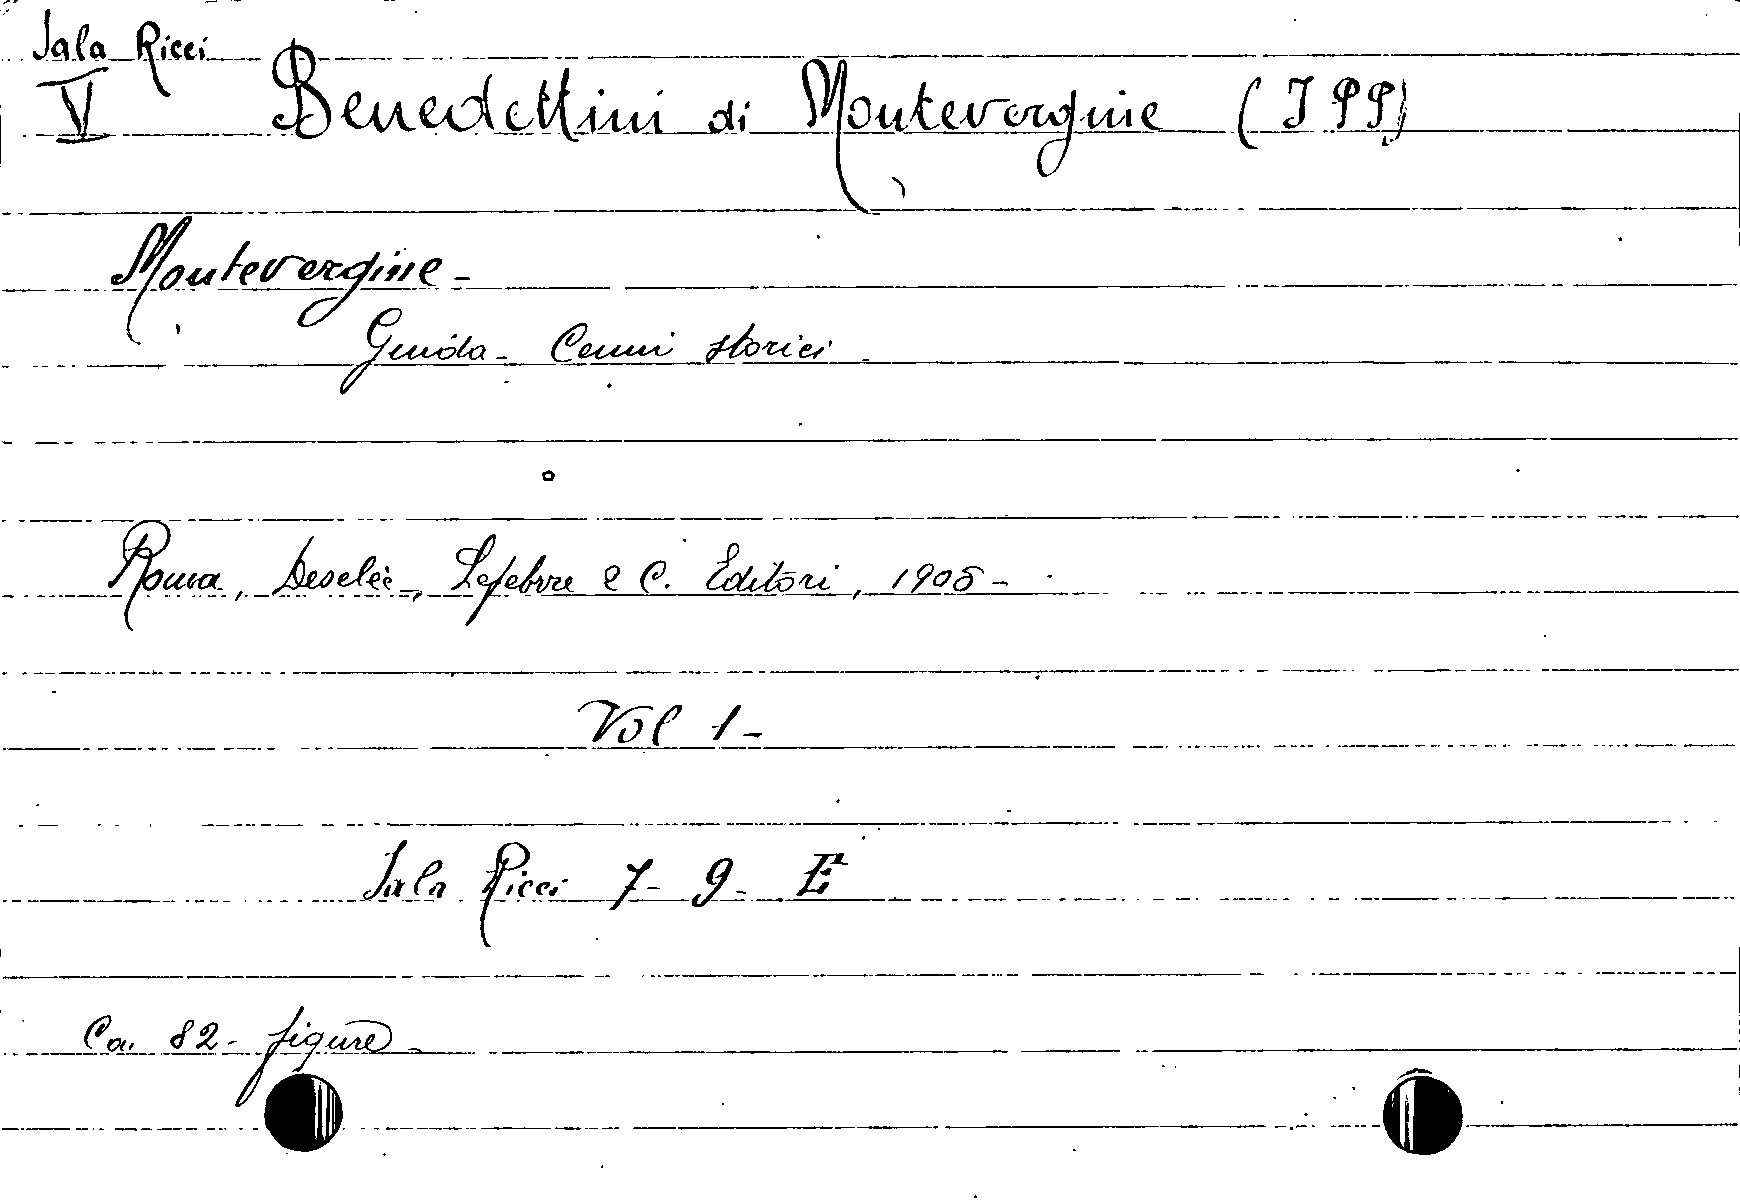 Sala Ricci
V Benedettini di Montevergine (I PP)
Montevergine -
Guida - Cenni storici -
Roma, Desclée, Lefebvre e C. Editori, 1905 -
Vol 1 -
Sala Ricci 7 - 9 - E
Ca. 82 - figure -